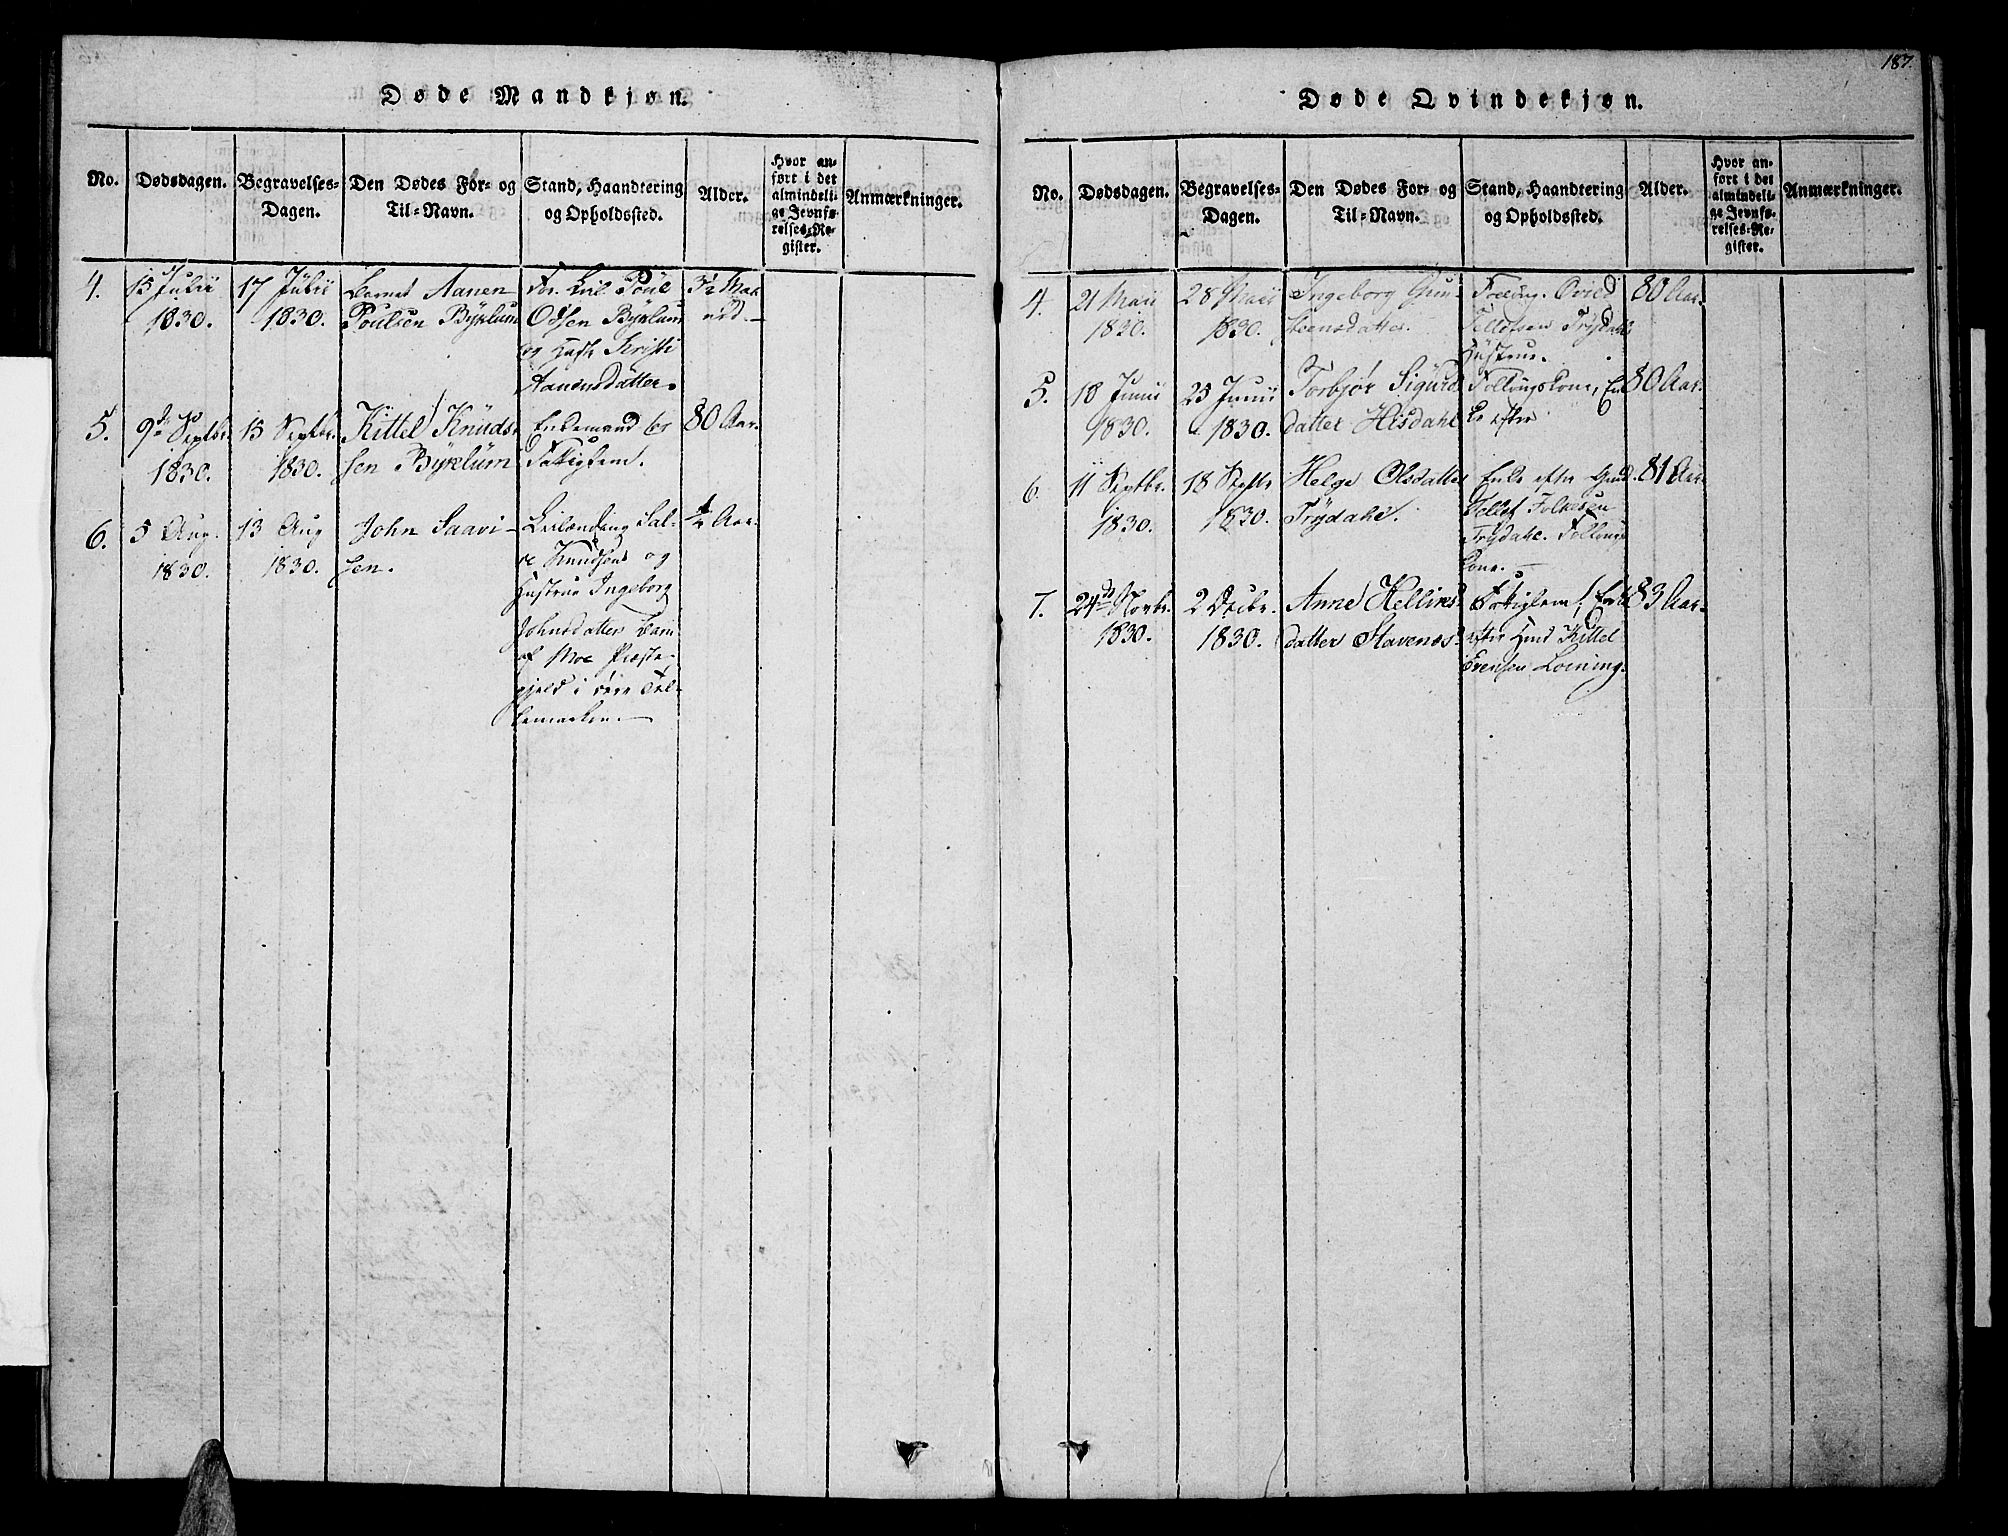 187.
Døde Mandkjøn.
No.
Dødsdagen.
Begravelses-
Dagen.
Den Dødes For- og
Til-Navn.
Stand, Haandtering
og Opholdssted.
Alder.
Hvor an-
ført i det
almindeli-
ge Jevnfø-
relses-Re-
gister.
Anmærkninger.
4.
15 Julii
1830.
17 Julii
1830.
Barnet Aanen
Poulsen Byklum
Poul
Odsen Byklum
og Kristi
Aanensdatter.
3½ Maa
5.
9de Septbr.
1830.
15 Septbr.
1830.
Kittel Knuds-
sen Byklum
Enkemand og
Fattiglem.
80 Aar.
6.
5 Aug.
1830.
13 Aug
1830.
John Saavi-
sen.
Sal-
ve Knudsens og
Hustrue Ingeborg
Johnsdatter
af Moe Præste-
gjeld i øvre Tel-
lemarken.
Aar.
Døde Qvindekjøn.
No.
Dødsdagen.
Begravelses-
Dagen.
Den Dødes For- og
Til-Navn.
Stand, Haandtering
og Opholdssted.
Alder.
Hvor an-
ført i det
almindeli-
ge Jevnfø-
relses-Re-
gister.
Anmærkninger.
4.
21 Maii
1830.
28 Maii
1830.
Ingeborg Gun-
steensdatter.
Folloug. Øvild
Tellefsen Trydahl
Hustrue.
80 Aar.
5.
18 Junii
1830.
25 Junii
1830.
Torbjør Sigurds
datter Hisdahl
Follougskone, En-
ke efter
80 Aar.
6.
11 Septbr.
1830.
18 Septbr
1830.
Helge Olsdatter
Trydahl.
Enke efter Gmd.
Tellef Folkesen
Trydahl. Follougs
kone.
81 Aar
7.
24de Novbr.
1830.
2 Decbr.
1830.
Anne Kellins-
datter Stavenes
Fattiglem, Enke
efter Hmd Kittel
Evensen Loining.
83 Aar.